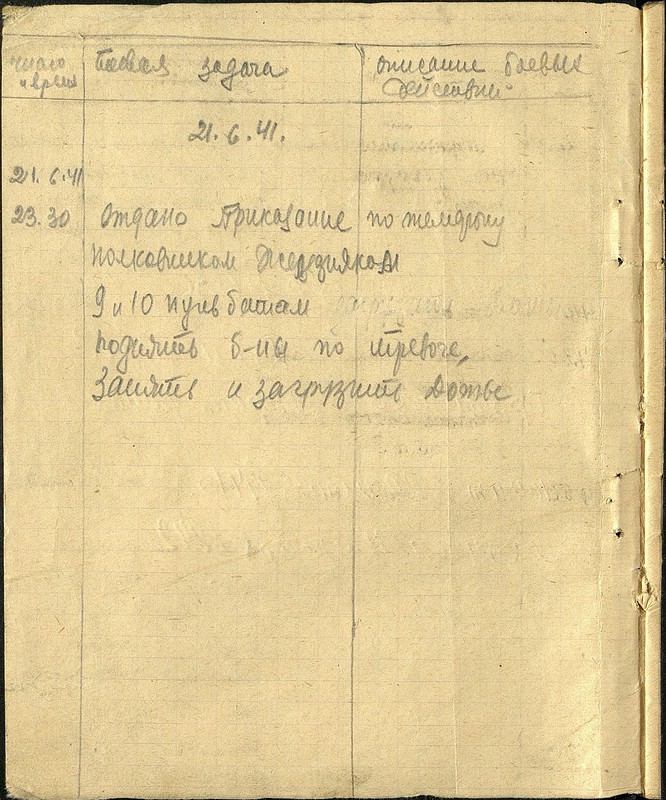 число Боевая задача описание боевых
и время действий
21. 6. 41.
21. 6. 41
23. 30 Отдано Приказание по телефону
полковником
9 и 10 пульбатам
поднять б-ны по тревоге,
Занять и загрузить Дотье